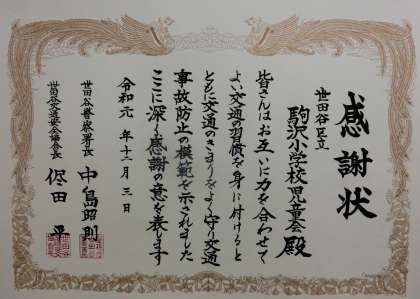 感謝状
世田谷区立
駒沢小学校児童会殿
皆さんはお互いに力を合わせて
よい交通の習慣を身に付けると
ともに交通のきまりをよく守り交通
事故防止の模範を示されました
ここに深く感謝の意を表します
令和元年十二月三日
世田谷警察署長 中島昭則
世田谷交通安全協会長 田平